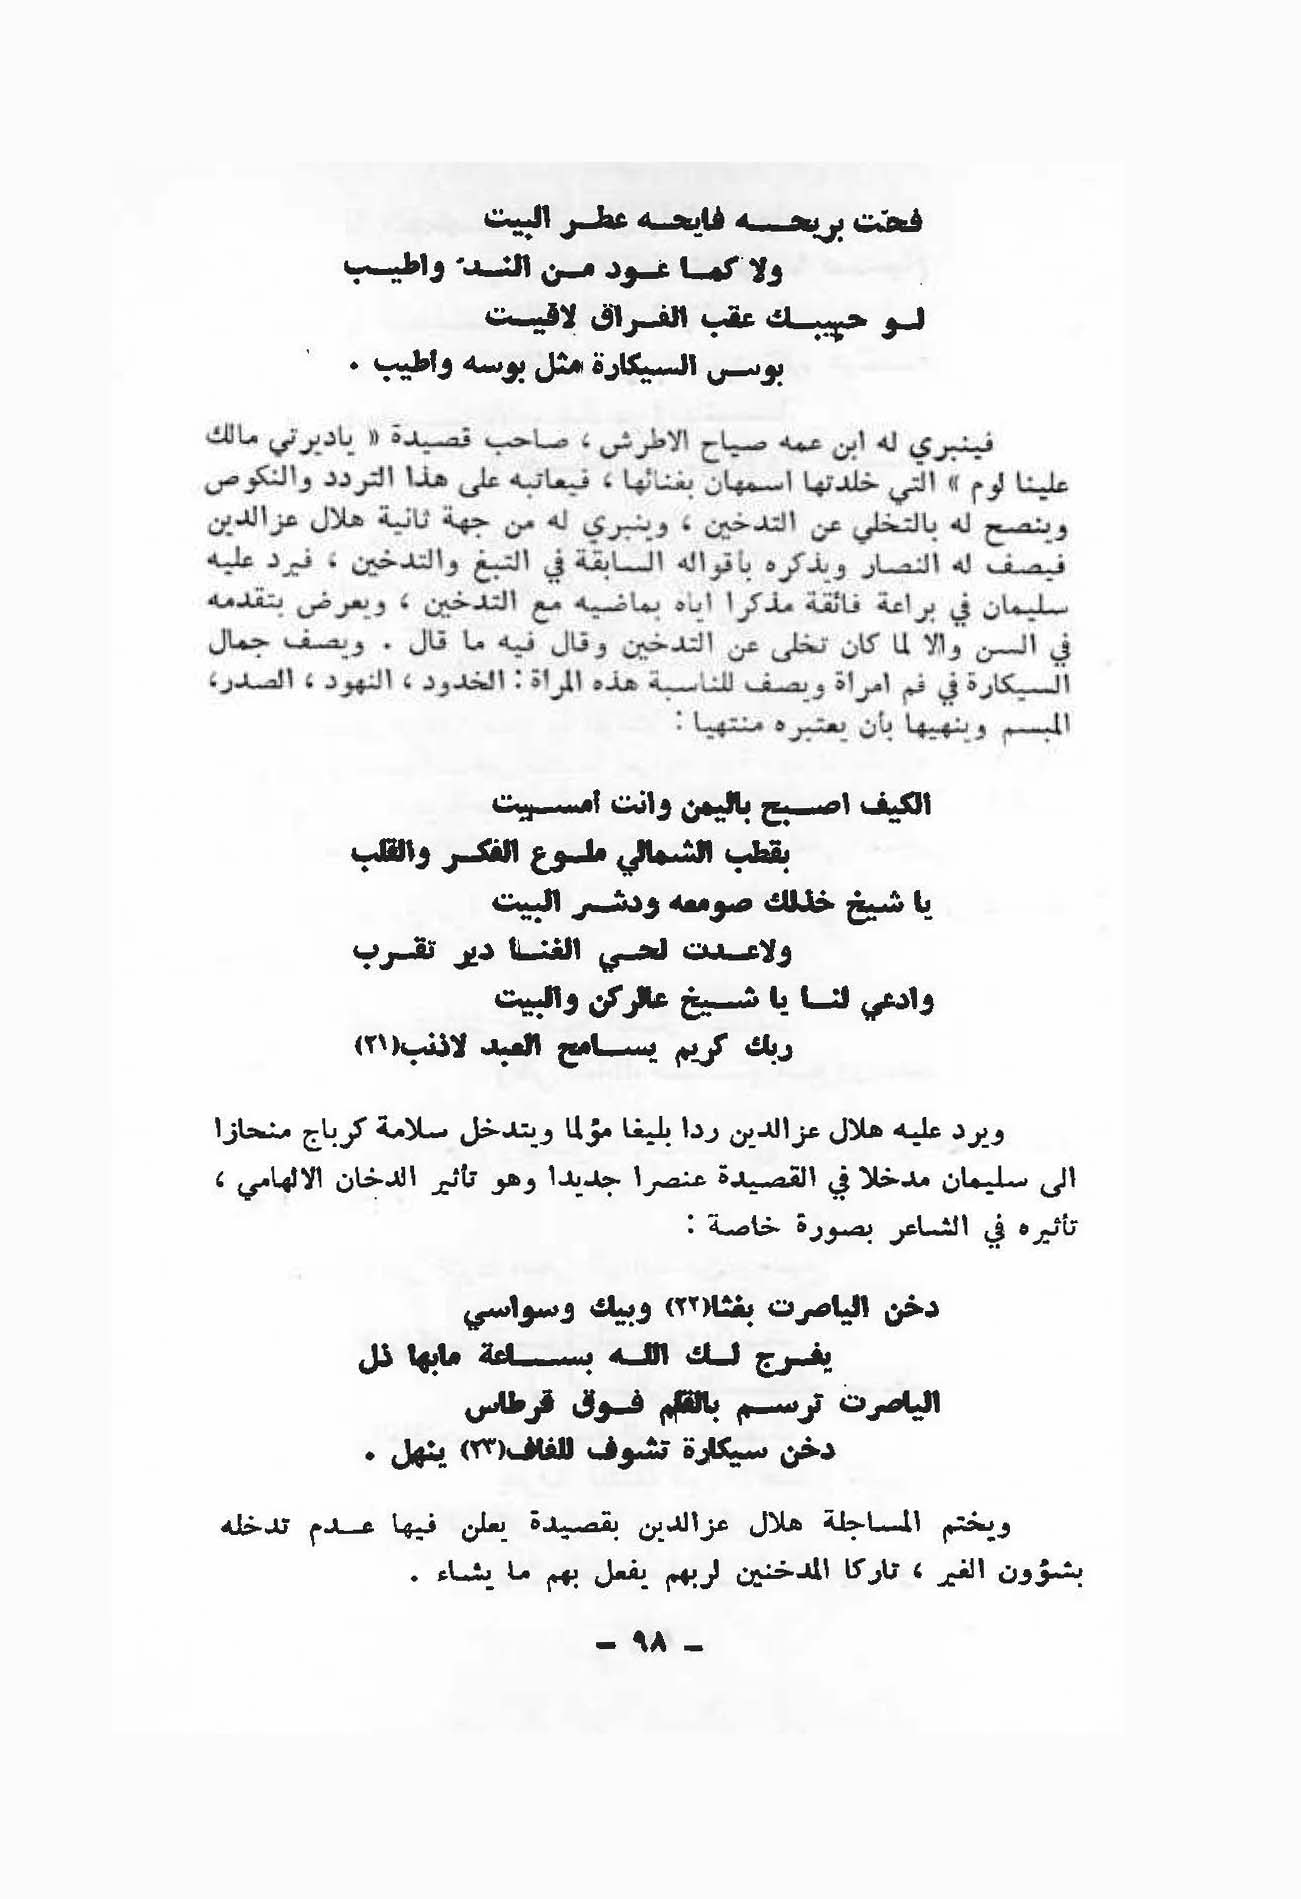 فحتّ بريحـــه فايحـه عطـر البيت
ولا كمـا عـود مـن النـدّ واطيـب
لـو حبيبـك عقب الفـراق لاقيـت
بوسـ السيكارة مثل بوسه واطيب .
فينبري له ابن عمه صياح الاطرش ، صاحب قصيدة « ياديرتي مالك
علينا لوم » التي خلدتها اسمهان بغنائها ، فيعاتبه على هذا التردد والنكوص
وينصح له بالتخلي عن التدخين ، وينبري له من جهة ثانية هلال عزالدين
فيصف له النصار ويذكره باقواله السابقة في التبغ والتدخين ، فيرد عليه
سليمان في براعة فائقة مذكرا اياه بماضيه مع التدخين ، ويعرض بتقدمه
في السن والا لما كان تخلى عن التدخين وقال فيه ما قال . ويصف جمال
السيكارة في فم امراة ويصف للناسبة هذه المراة : الخدود ، النهود ، الصدر،
المبسم وينهيها بأن يعتبره منتهيا :
الكيف اصـبح باليمن وانت امسـيت
بقطب الشمالي ملـوع الفكـر والقلب
يا شـيخ خذلك صومعه ودشـر البيت
ولاعـدت لحـي الغنـا دير تقـرب
وادعي لنـا يا شـيخ عالركن والبيت
ربك كريم يسـامح العبد لاذنب(٢١)
ويرد عليه هلال عزالدين ردا بليغا مؤلما ويتدخل سلامة كرباج منحازا
الى سليمان مدخلا في القصيدة عنصرا جديدا وهو تأثير الدخان الالهامي ،
تأثيره في الشاعر بصورة خاصة :
دخن الياصرت بغثا(٢٢) وبيك وسواسي
يفـرج لـك اللـه بسـاعة مابها ذل
الياصرت ترسـم بالقلم فـوق قرطاس
دخن سيكارة تشوف للفاف(٢٣) ينهل .
ويختم المساجلة هلال عزالدين بقصيدة يعلن فيها عـدم تدخله
بشؤون الغير ، تاركا المدخنين لربهم يفعل بهم ما يشاء .
– ٩٨ –